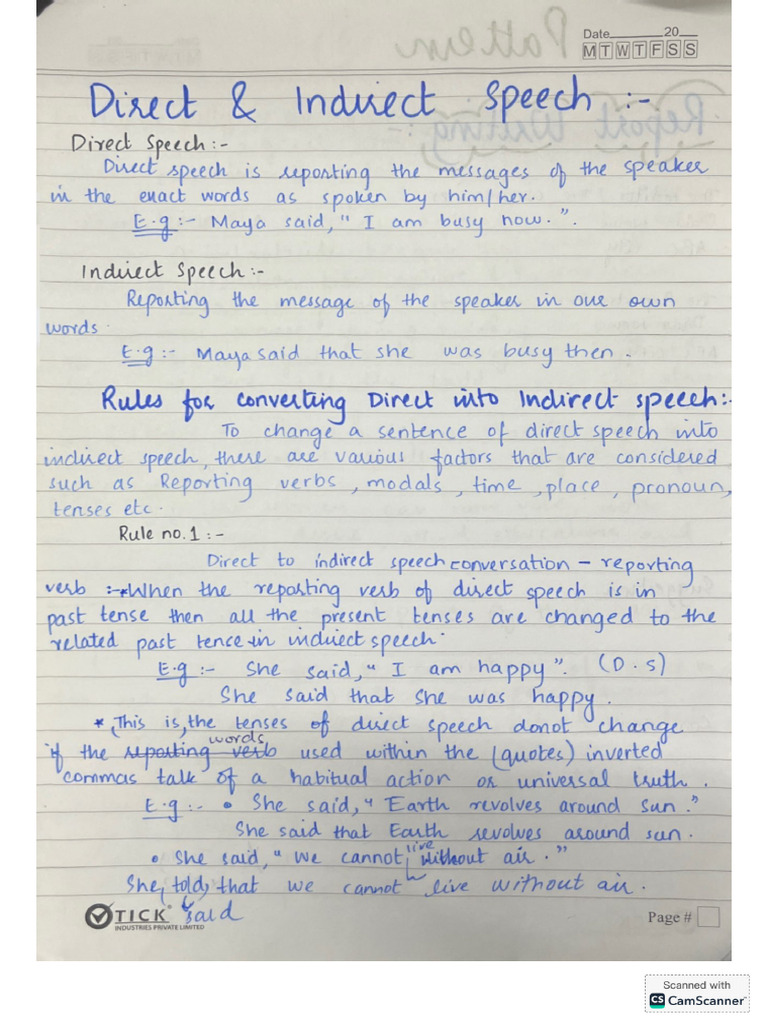 Pattern
Date 20
M T W T F S S
Report Writing :-
Direct & Indirect Speech :-
Direct Speech :-
Direct speech is reporting the messages of the speaker
in the exact words as spoken by him/her.
E.g :- Maya said, " I am busy now. ".
Indirect Speech :-
Reporting the message of the speaker in our own
words.
E.g :- Maya said that she was busy then.
Rules for converting Direct into Indirect speech :-
To change a sentence of direct speech into
indirect speech, there are various factors that are considered
such as Reporting verbs, modals, time, place, pronoun,
tenses etc.
Rule no. 1 :-
Direct to indirect speech conversation - reporting
verb :- * When the reporting verb of direct speech is in
past tense then all the present tenses are changed to the
related past tence in indirect speech.
E.g :- She said, " I am happy ". (D.S)
She said that she was happy.
* This is, the tenses of direct speech donot change
words
if the reporting verb used within the (quotes) inverted
commas talk of a habitual action or universal truth.
E.g :- • She said, " Earth revolves around sun. "
She said that Earth revolves around sun.
live
• She said, " we cannot without air. "
She, told, that we cannot live without air.
said
TICK
INDUSTRIES PRIVATE LIMITED
Page #
Scanned with
CS CamScanner